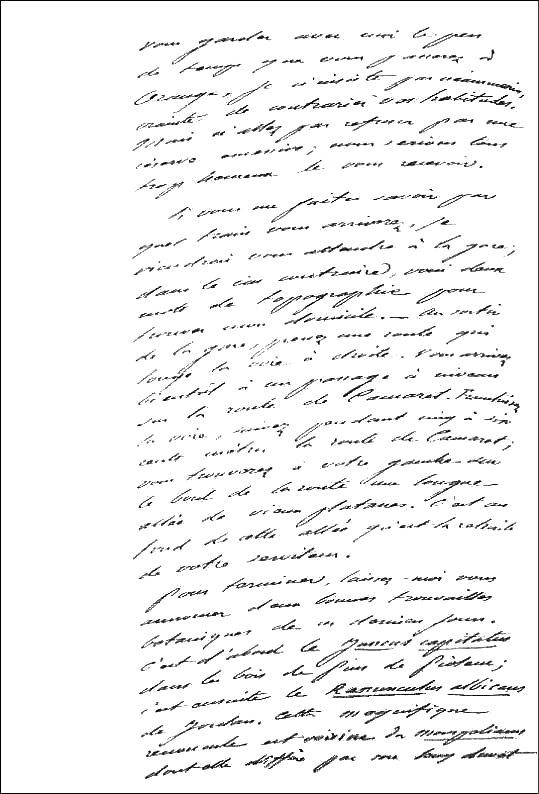 vous garder avec moi le peu
de temps que vous passerez à
Orange. Je n'insiste pas néanmoins,
crainte de contrarier vos habitudes.
Mais n'allez pas refuser par une
réserve excessive; nous serions tous
trop heureux de vous recevoir.
Si vous me faites savoir par
quel train vous arriverez, je
viendrai vous attendre à la gare;
dans le cas contraire, voici deux
mots de topographie pour
trouver mon domicile. — Au sortir
de la gare, prenez une route qui
longe la voie à droite. Vous arrivez
bientôt à un passage à niveau
sur la route de Camaret. Franchissez
la voie, suivez pendant cinq à six
cents mètres la route de Camaret;
vous trouverez à votre gauche sur
le bord de la route une longue
allée de vieux platanes. C'est au
fond de cette allée qu'est la retraite
de votre serviteur.
Pour terminer, laissez-moi vous
annoncer deux bonnes trouvailles
botaniques de ces derniers jours.
C'est d'abord le Juncus capitatus
dans les bois de pins de Piolenc;
c'est ensuite le Ranunculus albicans
de Jordan. Cette magnifique
renoncule est voisine du monspeliacus
dont elle diffère par son long duvet